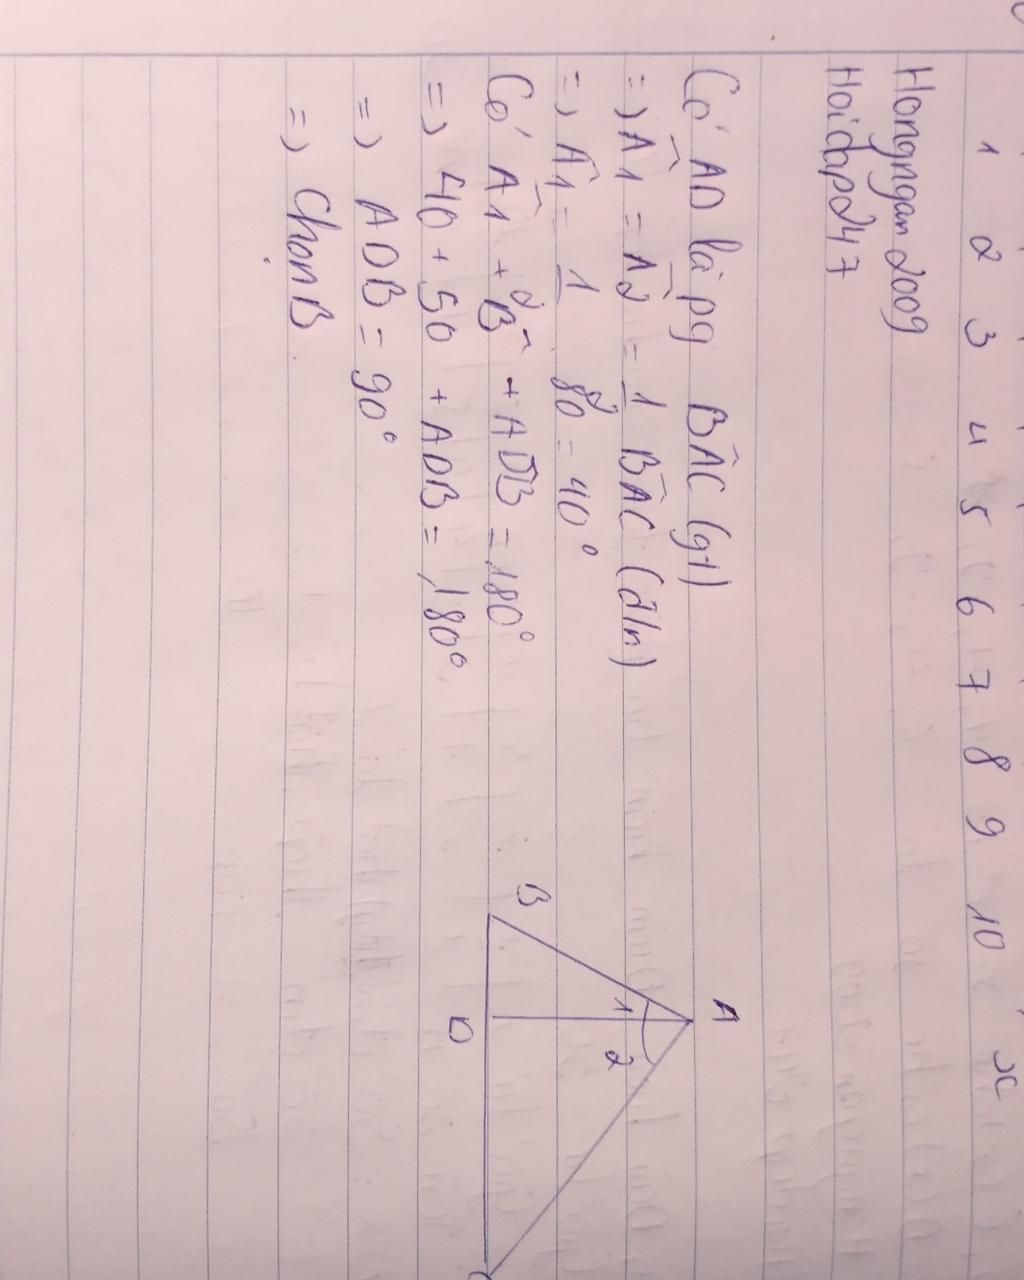 1 2 3 4 5 6 7 8 9 10 x
Hongngan2009
Hoidap247
Có AD là pg BÂC (gt)
=) Â1 = Â2 = 1/2 BÂC (đ/n)
=) Â1 = 1/2 80 = 40°
Có Â1 + B̂ + AD̂B = 180°
=) 40 + 50 + ADB = 180°
=) ADB = 90°
=) Chọn B.
A
1 2
B
D